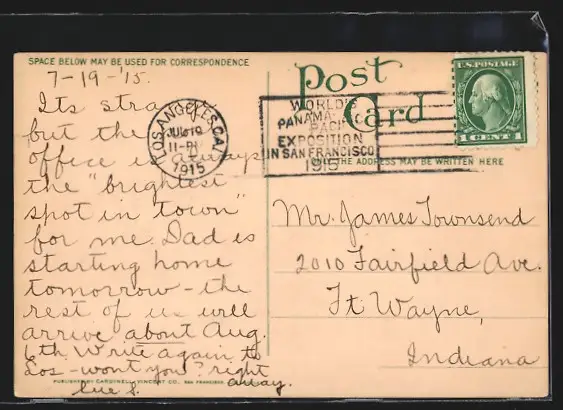 SPACE BELOW MAY BE USED FOR CORRESPONDENCE
7-19-'15.
Its
but the
office is always
the "brightest
spot in town"
for me. Dad is
starting home
tomorrow - the
rest of us will
arrive about Aug.
6th. Write again to
Los - wont you? right
away.
PUBLISHED BY CARDINELL-VINCENT CO., SAN FRANCISCO
LOS ANGELES, CAL.
JUL 19
11-PM
1915
WORLD'S
PANAMA-PACIFIC
EXPOSITION
IN SAN FRANCISCO
1915
Post
Card
U.S. POSTAGE
1 CENT 1
ONLY THE ADDRESS MAY BE WRITTEN HERE
Mr. James Townsend
2010 Fairfield Ave.
Ft. Wayne,
Indiana